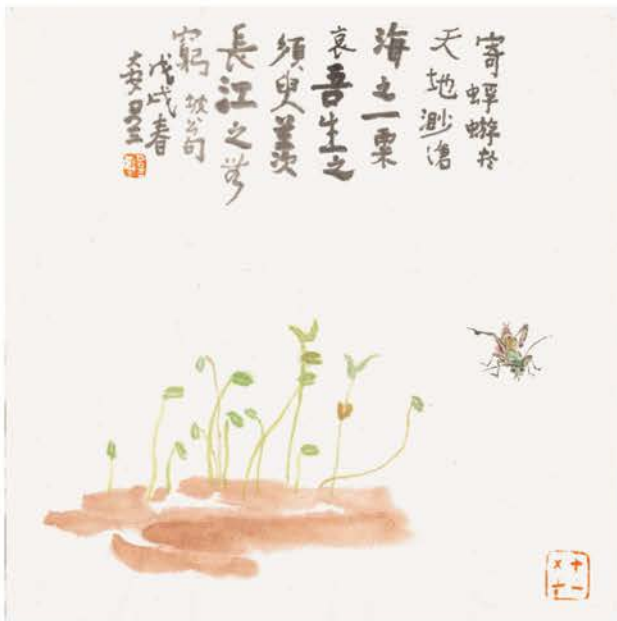 寄蜉蝣於
天地渺滄
海之一粟
哀吾生之
須臾羨
長江之無
窮 坡公句
戊戌春